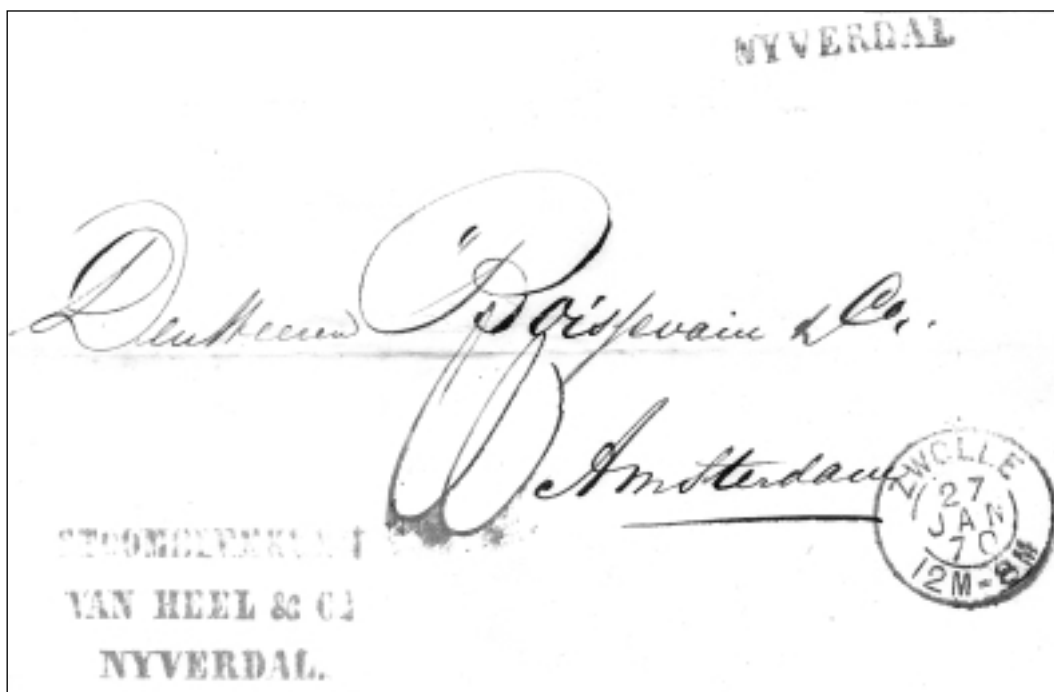 NYVERDAL
Den Heeren Boissevain & Co.
Amsterdam
ZWOLLE
27
JAN
70
12M-8M
VAN HEEL & Co
NYVERDAL.